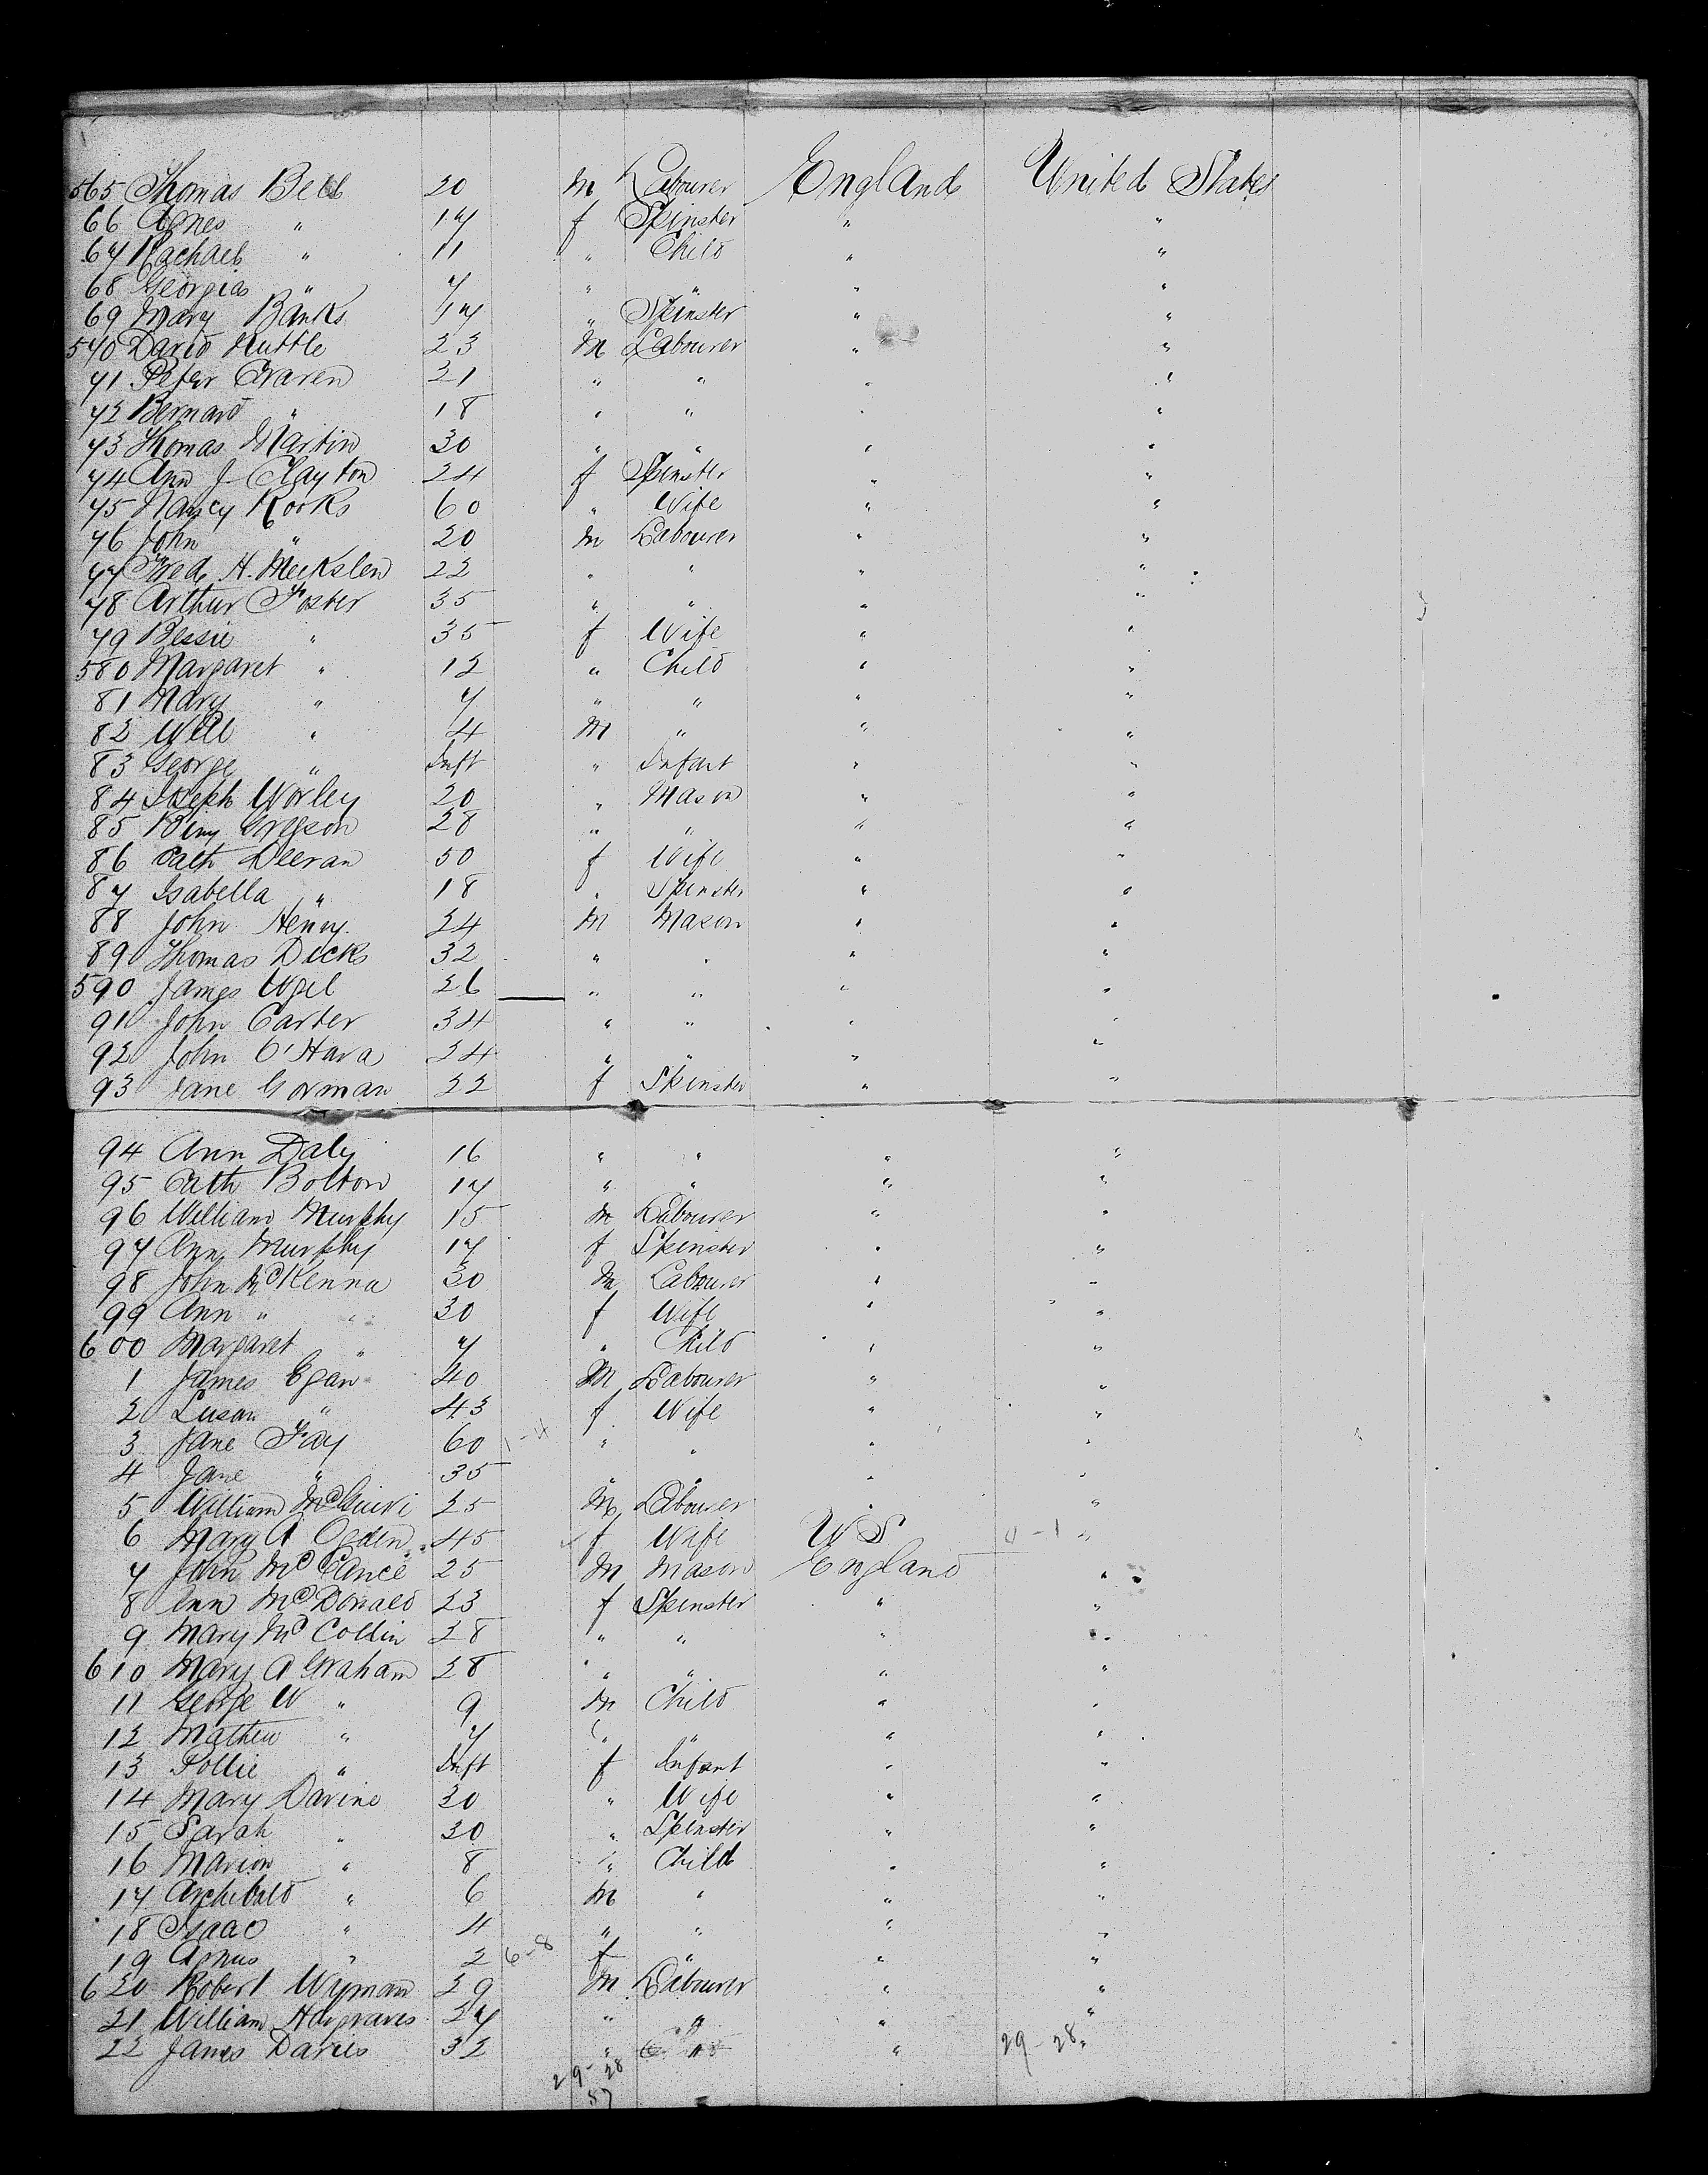 565 Thomas Bell 20 m Labourer England United States
66 Agnes " 17 f Spinster " "
67 Rachael " 11 " Child " "
68 Georgia " 7 " " " "
69 Mary Banks 17 " Spinster " "
570 David Nuttle 23 M Labourer " "
71 Peter Craven 21 " " " "
72 Bernard " 18 " " " "
73 Thomas Martin 30 " " " "
74 Ann J Clayton 24 f Spinster " "
75 Nancy Rooks 60 " Wife " "
76 John " 20 m Labourer " "
77 Fred. H. 22 " " " "
78 Arthur Foster 35 " " " "
79 Bessie " 35 f Wife " "
580 Margaret " 12 " Child " "
81 Mary " 7 " " " "
82 Will " 4 M " " "
83 George " Inft " Infant " "
84 Joseph Worley 20 " Mason " "
85 Binj Gregson 28 " " " "
86 Cath Deeran 50 f Wife " "
87 Isabella " 18 " Spinster " "
88 John Henry 24 M Mason " "
89 Thomas Dicks 32 " " " "
590 James 26 " " " "
91 John Carter 34 " " " "
92 John O'Hara 24 " " " "
93 Jane Gorman 22 f Spinster " "
94 Ann Daly 16 " " " "
95 Cath Bolton 17 " " " "
96 William Murphy 15 m Labourer " "
97 Ann Murphy 17 f Spinster " "
98 John McKenna 30 M Labourer " "
99 Ann " " 30 f Wife " "
600 Margaret " 7 " Child " "
1 James Egan 40 M Labourer " "
2 Susan " 43 f Wife " "
3 Jane Fay 60 1-4 " " " "
4 Jane " 35 " " " "
5 William 25 M Labourer " "
6 Mary A Ogden 45 f Wife US 0-1 "
7 John McCance 25 M Mason England "
8 Ann McDonald 23 f Spinster " "
9 Mary McCollin 28 " " " "
610 Mary A Graham 28 " " " "
11 George W " 9 M Child " "
12 Mathew " 7 " " " "
13 Pollie " Inft f Infant " "
14 Mary Davine 30 " Wife " "
15 Sarah " 30 " Spinster " "
16 Marion " 8 " Child " "
17 Archibald " 6 M " " "
18 Isaac " 4 " " " "
19 Agnus " 2 6-8 f " " "
620 Robert Wyman 29 M Labourer " "
21 William Hargraves 27 " " " "
22 James Davies 32 " " " 29-28 "
29-28
57